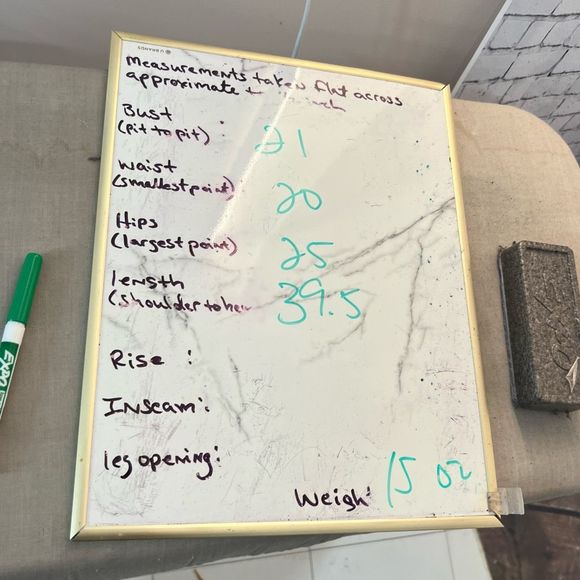 U BRANDS
Measurements taken flat across
approximate
Bust : 21
(pit to pit)
Waist 20
(smallest point)
Hips 25
(largest point)
length 39.5
(shoulder to hem
Rise :
Inseam:
leg opening:
Weigh: 15 oz
EXPO